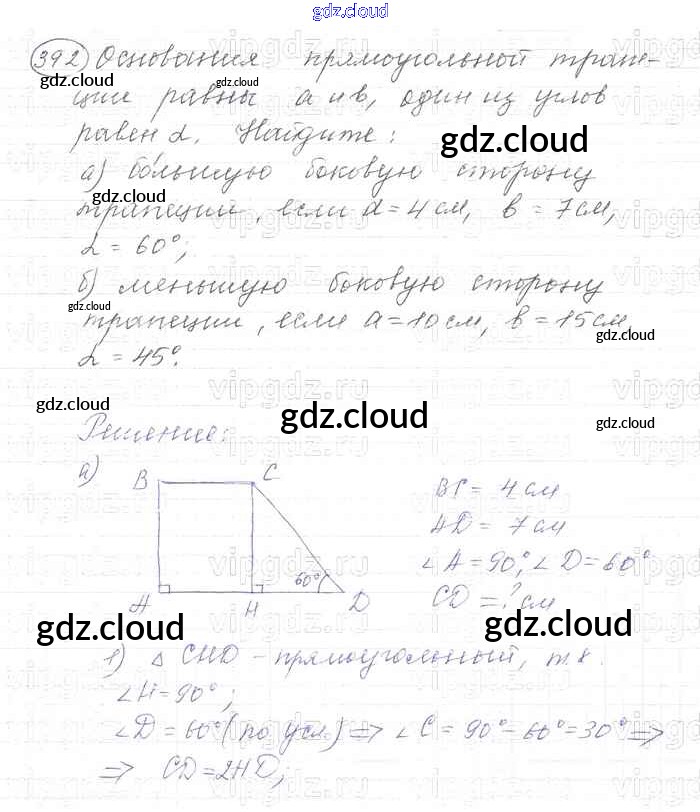 gdz.cloud
392) Основания прямоугольной трапе-
gdz.cloud gdz.cloud
ции равны a и b, один из углов
равен α. Найдите:
gdz.cloud
а) большую боковую сторону
gdz.cloud
трапеции, если a = 4 см, b = 7 см,
α = 60°;
б) меньшую боковую сторону
gdz.cloud
трапеции, если a = 10 см, b = 15 см,
gdz.cloud
α = 45°.
gdz.cloud gdz.cloud gdz.cloud
Решение:
а) B C
BC = 4 см
AD = 7 см
∠A = 90°, ∠D = 60°
60°
CD = ? см
A H D
gdz.cloud gdz.cloud gdz.cloud
1) △ CHD – прямоугольный, т.к.
∠H = 90°;
∠D = 60° (по усл.) ⇒ ∠C = 90° – 60° = 30° ⇒
⇒ CD = 2HD;